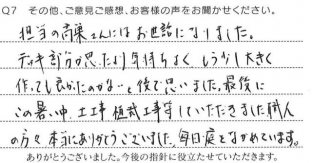 Q7 その他、ご意見ご感想、お客様の声をお聞かせください。
担当の高桒さんにはお世話になりました。
デッキ部分が思ったより気持ちよく もう少し大きく
作っても良かったのかな…と後で思いました。最後に
この暑い中、工事 植栽工事等していただきました職人
の方々 本当にありがとうございました。毎日庭をながめています。
ありがとうございました。今後の指針に役立たせていただきます。